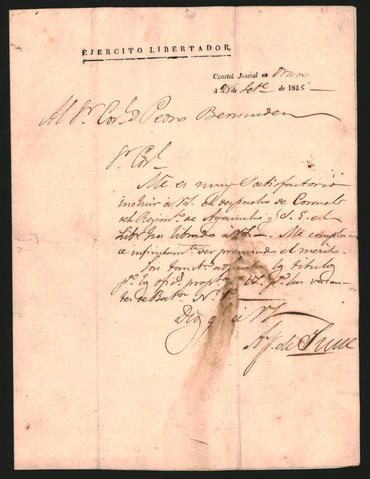 EJERCITO LIBERTADOR.
Cuartel Jeneral en Oruro
á 28 de Set.e de 1825
Al Sr. Cor.l D. Pedro Bermudez
Sr. Corl.
Me es muy satisfactorio
incluir á VS. el despacho de Coronel
del Regim.to de Ayacucho q. S. E. el
Lib.r ha librado á VS. Me compla-
ce infinitam.te ver premiado el merito.
Son tamb.n los titulos
p.a los ofic.s prop.s p.a las vacan-
tes de Bat.n N.
Dios gue á VS.
A. J. de Sucre